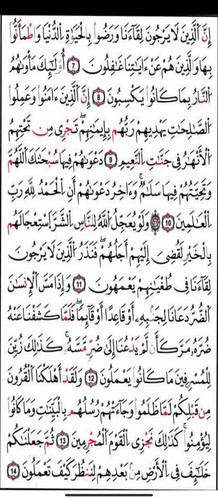 إِنَّ ٱلَّذِينَ لَا يَرْجُونَ لِقَآءَنَا وَرَضُوا۟ بِٱلْحَيَوٰةِ ٱلدُّنْيَا وَٱطْمَأَنُّوا۟
بِهَا وَٱلَّذِينَ هُمْ عَنْ ءَايَـٰتِنَا غَـٰفِلُونَ ٧ أُو۟لَـٰٓئِكَ مَأْوَىٰهُمُ
ٱلنَّارُ بِمَا كَانُوا۟ يَكْسِبُونَ ٨ إِنَّ ٱلَّذِينَ ءَامَنُوا۟ وَعَمِلُوا۟
ٱلصَّـٰلِحَـٰتِ يَهْدِيهِمْ رَبُّهُم بِإِيمَـٰنِهِمْ ۖ تَجْرِى مِن تَحْتِهِمُ
ٱلْأَنْهَـٰرُ فِى جَنَّـٰتِ ٱلنَّعِيمِ ٩ دَعْوَىٰهُمْ فِيهَا سُبْحَـٰنَكَ ٱللَّهُمَّ
وَتَحِيَّتُهُمْ فِيهَا سَلَـٰمٌ ۚ وَءَاخِرُ دَعْوَىٰهُمْ أَنِ ٱلْحَمْدُ لِلَّهِ رَبِّ
ٱلْعَـٰلَمِينَ ١٠ ۞ وَلَوْ يُعَجِّلُ ٱللَّهُ لِلنَّاسِ ٱلشَّرَّ ٱسْتِعْجَالَهُم
بِٱلْخَيْرِ لَقُضِىَ إِلَيْهِمْ أَجَلُهُمْ ۖ فَنَذَرُ ٱلَّذِينَ لَا يَرْجُونَ
لِقَآءَنَا فِى طُغْيَـٰنِهِمْ يَعْمَهُونَ ١١ وَإِذَا مَسَّ ٱلْإِنسَـٰنَ
ٱلضُّرُّ دَعَانَا لِجَنۢبِهِۦٓ أَوْ قَاعِدًا أَوْ قَآئِمًا فَلَمَّا كَشَفْنَا عَنْهُ
ضُرَّهُۥ مَرَّ كَأَن لَّمْ يَدْعُنَآ إِلَىٰ ضُرٍّ مَّسَّهُۥ ۚ كَذَٰلِكَ زُيِّنَ
لِلْمُسْرِفِينَ مَا كَانُوا۟ يَعْمَلُونَ ١٢ وَلَقَدْ أَهْلَكْنَا ٱلْقُرُونَ
مِن قَبْلِكُمْ لَمَّا ظَلَمُوا۟ ۙ وَجَآءَتْهُمْ رُسُلُهُم بِٱلْبَيِّنَـٰتِ وَمَا كَانُوا۟
لِيُؤْمِنُوا۟ ۚ كَذَٰلِكَ نَجْزِى ٱلْقَوْمَ ٱلْمُجْرِمِينَ ١٣ ثُمَّ جَعَلْنَـٰكُمْ
خَلَـٰٓئِفَ فِى ٱلْأَرْضِ مِنۢ بَعْدِهِمْ لِنَنظُرَ كَيْفَ تَعْمَلُونَ ١٤